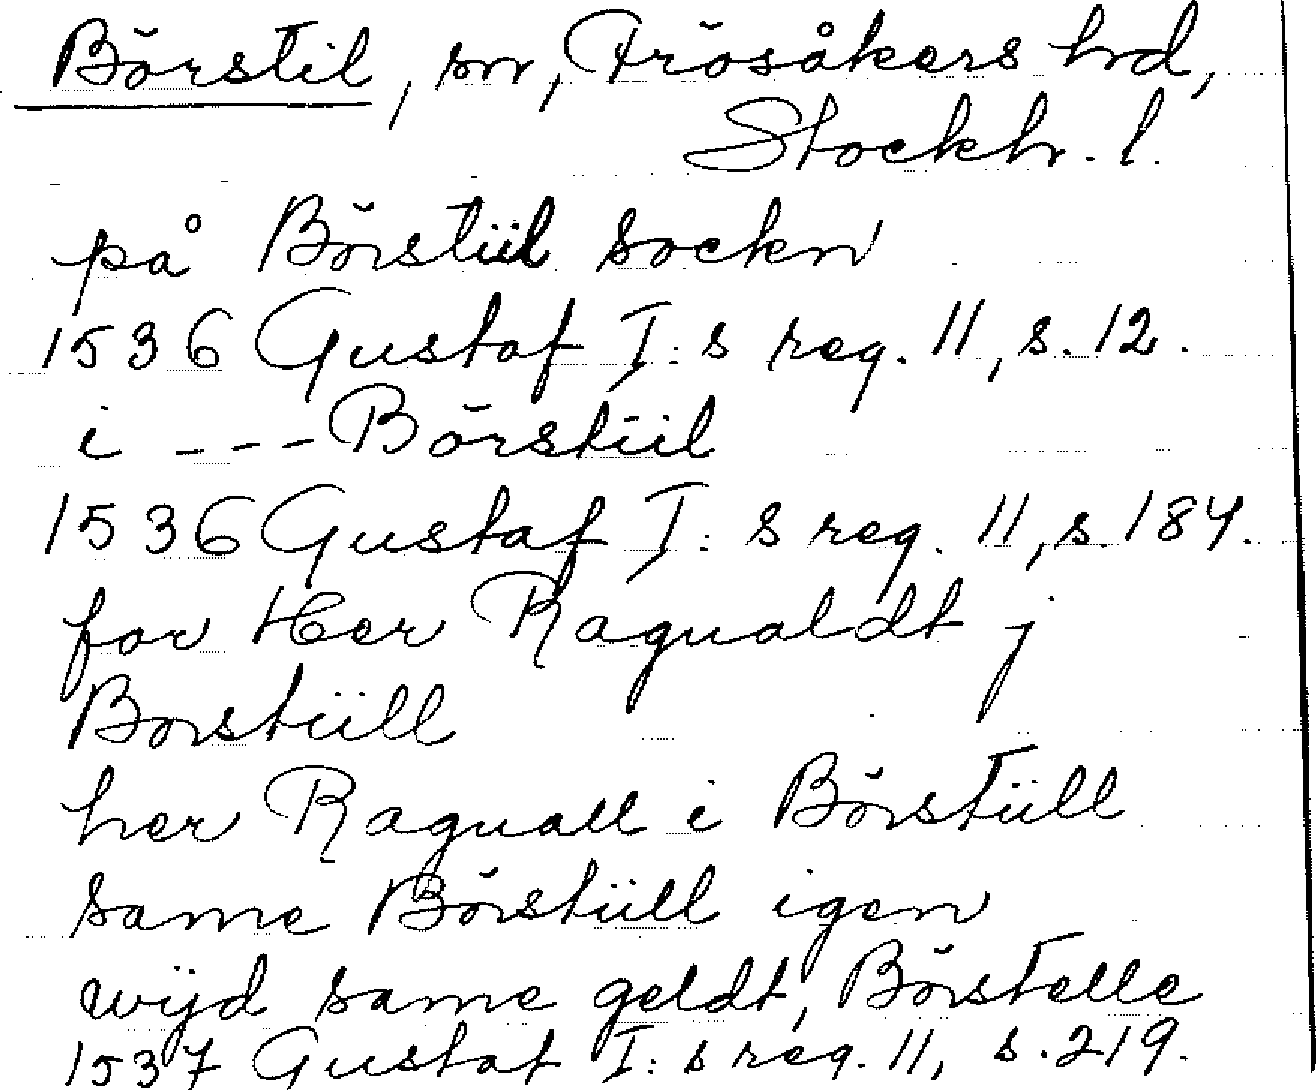 Börstil, sn, Frösåkers hrd,
Stockh. l.
på Börstiil sockn
1536 Gustaf I:s reg. 11, s. 12.
i --- Börstiil
1536 Gustaf I:s reg. 11, s. 184.
for Her Ragualdt j
Borstiill
her Raguall i Börstiill
same Börstiill igen
wijd same geldt, Börstelle
1537 Gustaf I:s reg. 11, s. 219.